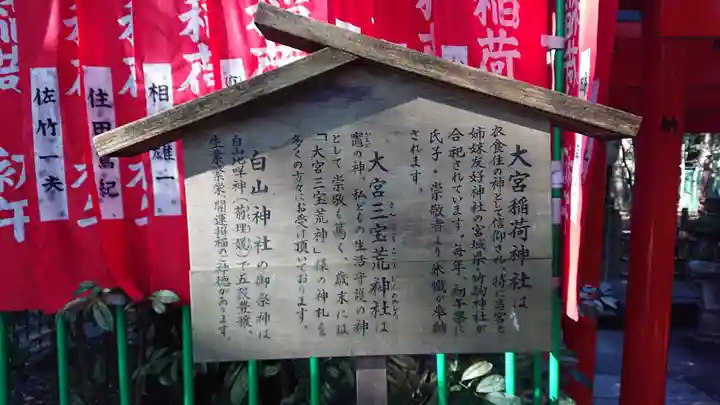 大宮稲荷神社は
衣食住の神として信仰され、特に当宮と
姉妹友好神社の宮城県・竹駒神社が
合祀されています。毎年、初午祭に
氏子・崇敬者より朱幟が奉納
されます。
大宮三宝荒神社は
竈の神、私どもの生活守護の神
として崇敬も篤く、歳末には
「大宮三宝荒神」様の神札を
多くの方々にお受け頂いております。
白山神社の御祭神は
白山比咩神(菊理媛)で五穀豊穣、
生業繁栄、開運招福の二神徳があります。
稲荷
佐竹一夫
初午